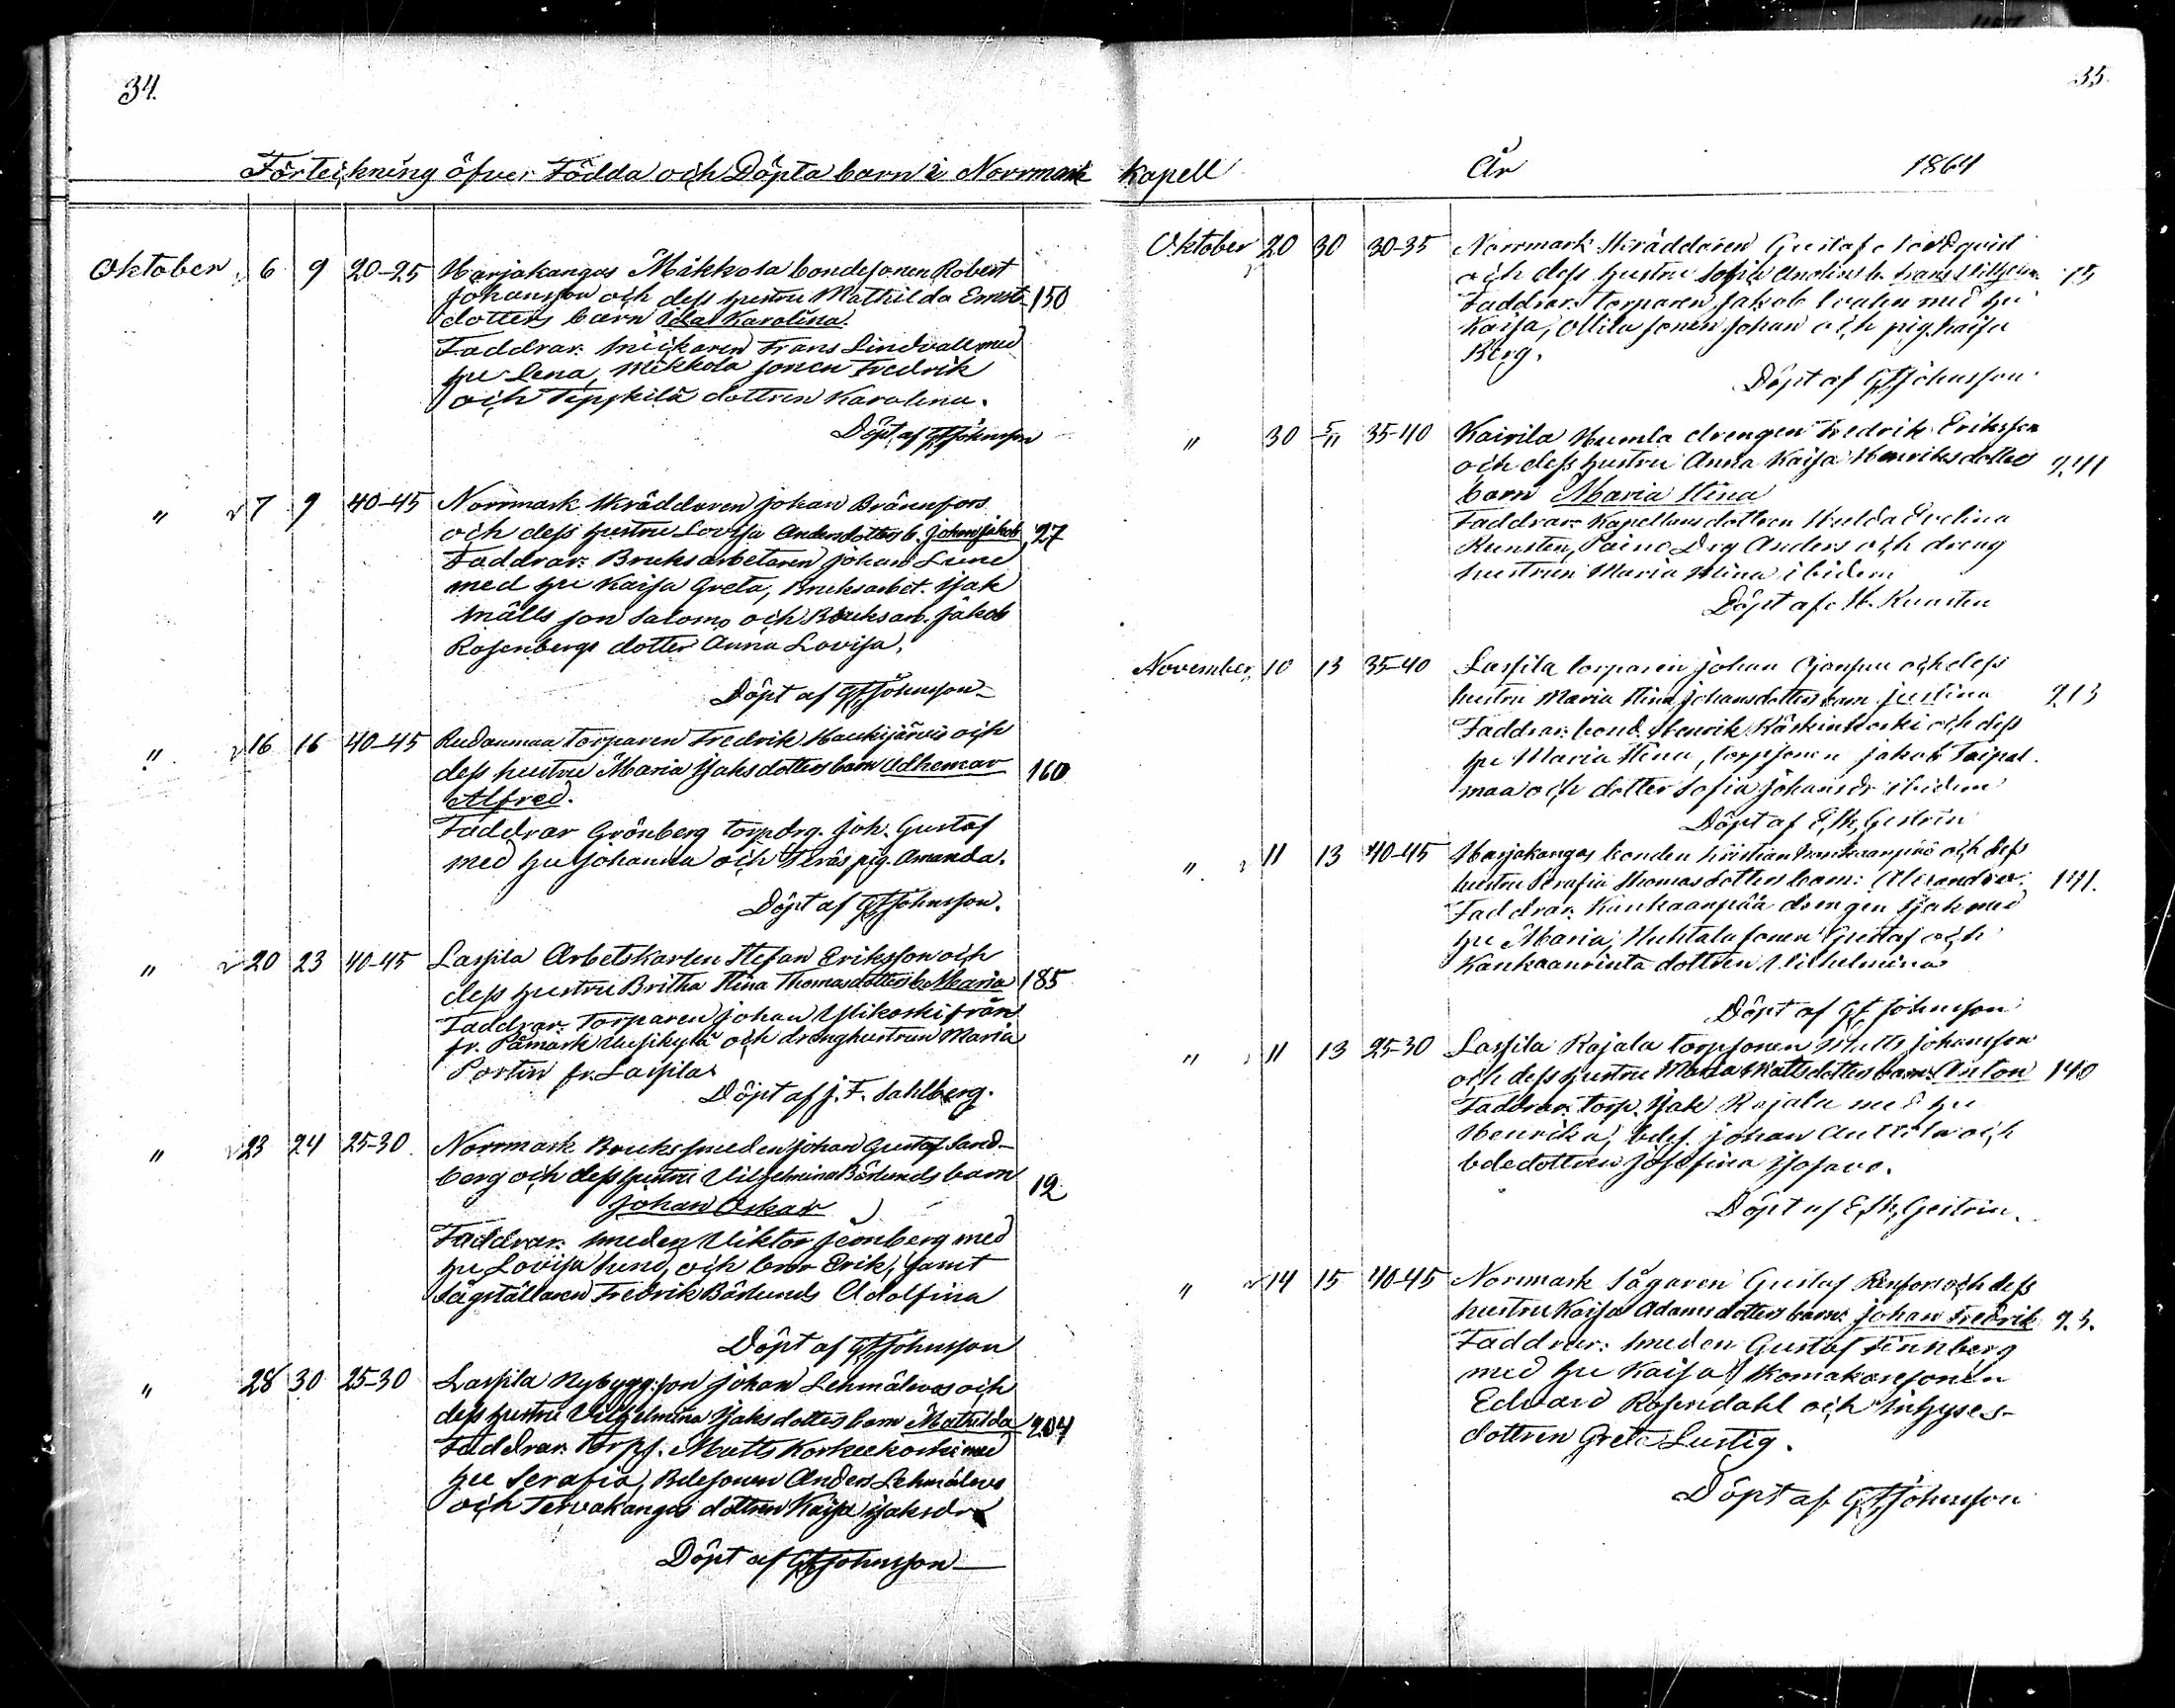 34.
Förteckning öfver Födda och Döpta barn i Norrmark
Oktober 6 9 20-25 Harjakangas Mikkola bondesonen Robert
Johansson och dess hustru Mathilda Ernst- 150
dotters barn Ida Karolina.
Faddrar: snickaren Frans Lindvall med
hu Lena, Mikkola sonen Fredrik
och dottren Karolina.
Döpt af GFJohnsson
" 7 9 40-45 Norrmark skräddaren Johan Brännfors
och dess hustru Lovisa Andersdotters b. Johan Jakob 27
Faddrar: Bruksarbetaren Johan Lund
med hu Kaisa Greta, Bruksarbet. Isak
Mälls son Salomo och Bruksarb. Jakob
Rosenbergs dotter Anna Lovisa.
Döpt af GFJohnsson
" 16 16 40-45 Rudanmaa torparen Fredrik Haukijärvi och
dess hustru Maria Isaksdotters barn Adhemar 160
Alfred.
Faddrar Grönberg torpdrg. Joh. Gustaf
med hu Johanna och pig. Amanda.
Döpt af GFJohnsson.
" 20 23 40-45 Lassila Arbetskarlen Stefan Eriksson och
dess hustru Britha Stina Thomasdotters b. Maria 185
Faddrar: Torparen Johan Ylikoski från
fr. Påmark Uusikylä och dränghustrun Maria
Portin fr. Lassila
Döpt af J. F. Sahlberg.
" 23 24 25-30 Norrmark Brukssmeden Johan Gustaf Sand-
berg och dess hustru Vilhelmina Bärlunds barn 12
Johan Oskar
Faddrar: smeden Viktor Jernberg med
hu Lovisa Lund, och bror Erik, samt
Sågställaren Fredrik Bärlunds Adolfina
Döpt af GFJohnsson
" 28 30 25-30 Lassila Nybygg:son Johan Lehmälevos och
dess hustru Vilhelmina Isaksdotters barn Mathilda 204
Faddrar: Torps. Matts Korkeekoski med
hu Serafia, Bdesonen Anders Lehmälevo
och Tervakangas dottren Kaisa Isaksdr
Döpt af GFJohnsson
35.
Kapell År 1864
Oktober 20 30 30-35 Norrmark skräddaren Gustaf Nordqvist
och dess hustru Sofia b. Frans Vilhelm 15
Faddrar: torparen Jakob med hu
Kaisa, Ollila sonen Johan och pig. Kaisa
Berg.
Döpt af GFJohnsson
" 30 5/11 35-40 Kairila Humla drengen Fredrik Eriksson
och dess hustru Anna Kaisa Henriksdotters 241
barn Maria Stina
Faddrar: Kapellans dottren Hulda Evelina
Kunsten, Paino Drg Anders och dreng
hustrun Maria Stina ibidem
Döpt af H. Kunsten
November 10 13 35-40 Lassila torparen Johan och dess
hustru Maria Stina Johansdotters barn Justina 213
Faddrar: bond. Henrik och dess
hu Maria Stina, torpsonen Jakob Taipal-
maa och dotter Sofia Johansdr ibidem
Döpt af E. W. Gestrin
" 11 13 40-45 Harjakangas bonden Kristian Kankaanpää och dess
hustru Serafia Thomasdotters barn: Alexandra. 141.
Faddrar: Kankaanpää drengen Isak med
hu Maria, Huhtala sonen Gustaf och
Kankaanrinta dottren Vilhelmina
Döpt af GFJohnsson
" 11 13 25-30 Lassila Rajala torpsonen Matts Johansson
och dess hustru Maria Mattsdotters barn: Anton 140
Faddrar: Torp. Isak Rajala med hu
Henrika, bdes. Johan Anttila och
bdedottren Josefina
Döpt af E. W. Gestrin.
" 14 15 40-45 Norrmark sågaren Gustaf Renfors och dess
hustru Kaisa Adamsdotters barn: Johan Fredrik 23.
Faddrar: smeden Gustaf Finnberg
med hu Kaisa, skomakaresonen
Edvard Rosendahl och inhyses-
dottren Greta Lustig.
Döpt af GFJohnsson